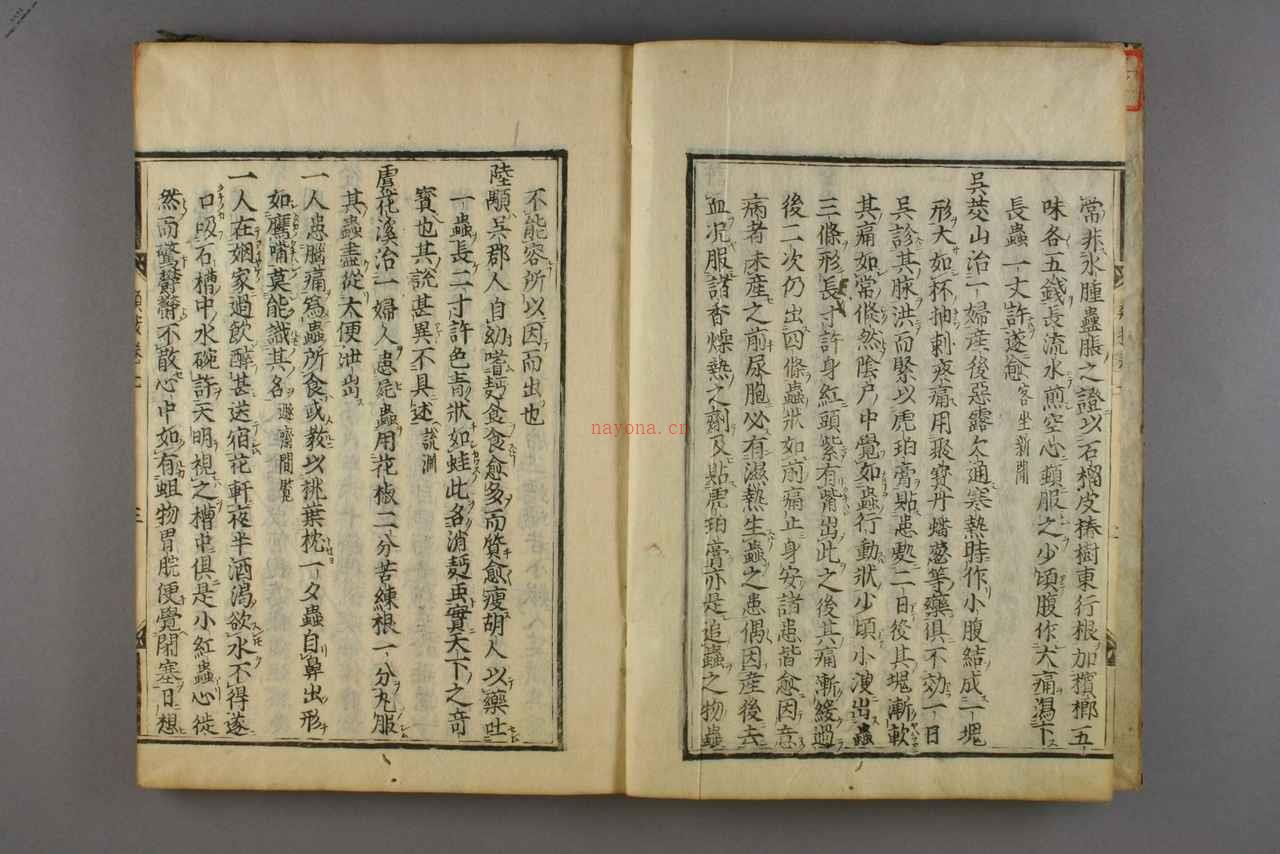 常非水腫蠱脹之證以石榴皮椿樹東行根加檳榔五
味各五錢長流水煎空心頓服之少頃腹作大痛瀉下
長蟲一丈許遂愈 客坐新聞
吳茭山治一婦產後惡露欠通寒熱時作小腹結成一塊
形大如杯抽刺疼痛用聚寶丹蟠葱等藥俱不効一日
吳診其脉洪而緊以虎珀膏貼患數二日後其塊漸軟
其痛如常倏然陰户中覺如蟲行動狀少頃小溲出蟲
三條形長寸許身紅頭紫有觜出此之後其痛漸緩過
後二次仍出四條蟲狀如前痛止身安諸患皆愈因意
病者未産之前尿胞必有濕熱生蟲之患偶因産後去
血况服諸香燥熱之劑及貼虎珀膏亦是追蟲之物蟲
不能容所以因而出也
陸顒吳郡人自幼嗜麪食食愈多而質愈瘦胡人以藥吐
一蟲長二寸許色青狀如蛙此名消麪虫實天下之奇
寶也其說甚異不具述 說淵
盧花溪治一婦人患屍蟲用花椒二分苦練根一分丸服
其蟲盡從大便泄出
一人患腦痛為蟲所食或教以桃葉枕一夕蟲自鼻出形
如鷹嘴莫能識其名 遯齋間覽
一人在姻家過飲醉甚送宿花軒夜半酒渴欲水不得遂
口吸石槽中水碗許天明視之槽中俱是小紅蟲心徙
然而驚鬱鬱不散心中如有蛆物胃脘便覺閉塞日想
nayona.cn